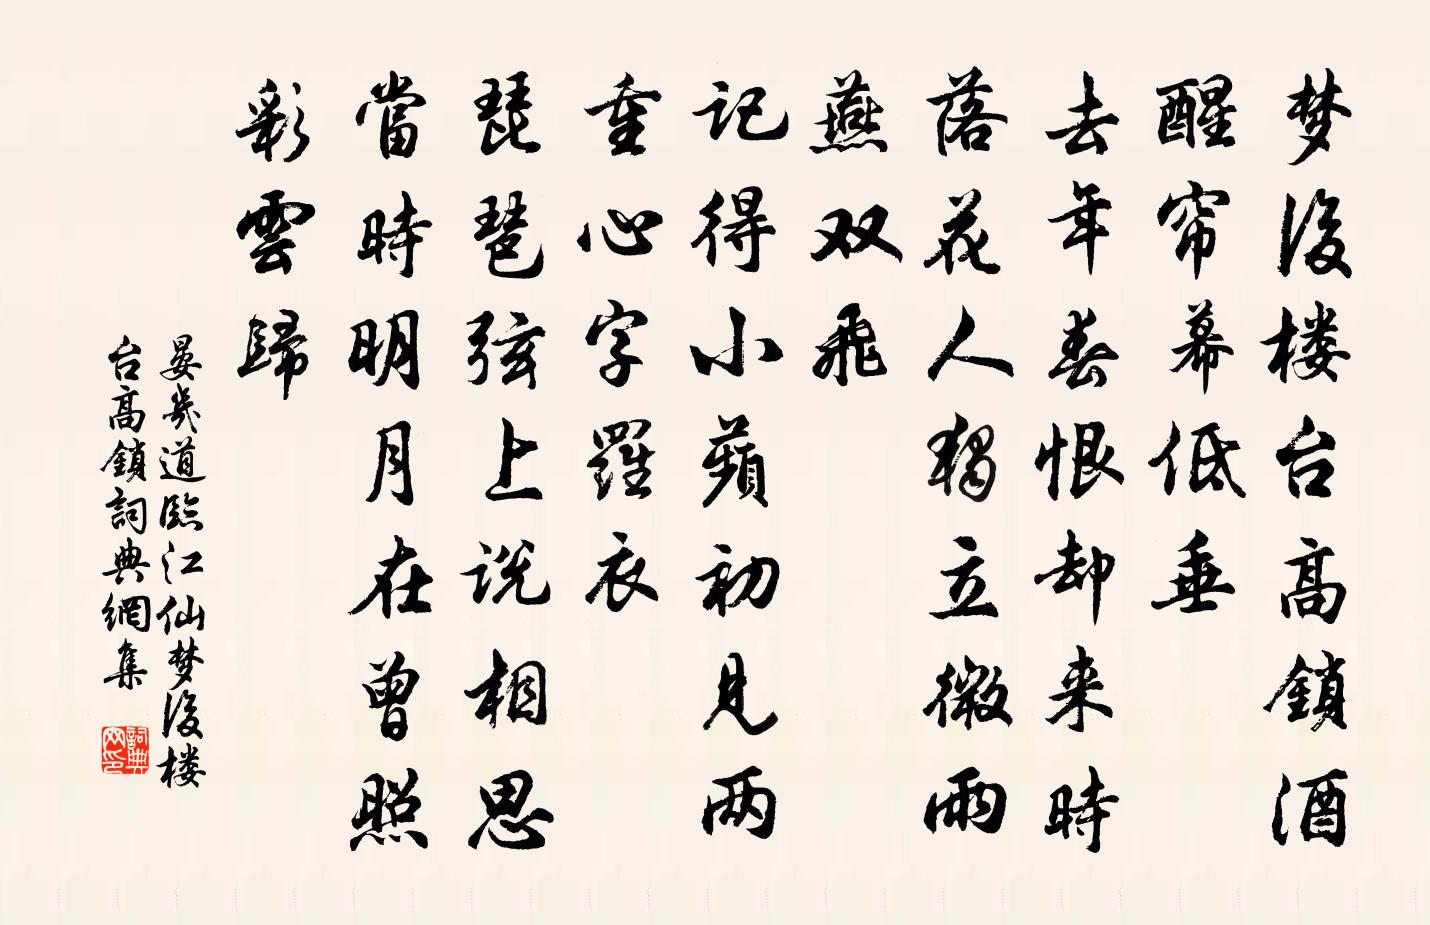 梦後楼台高鎖酒
醒帘幕低垂
去年春恨却来時
落花人独立微雨
燕双飛
记得小蘋初见两
重心字羅衣
琵琶弦上说相思
當時明月在曾照
彩雲歸
晏幾道臨江仙梦後楼
台高鎖詞典網集
詞典
网印